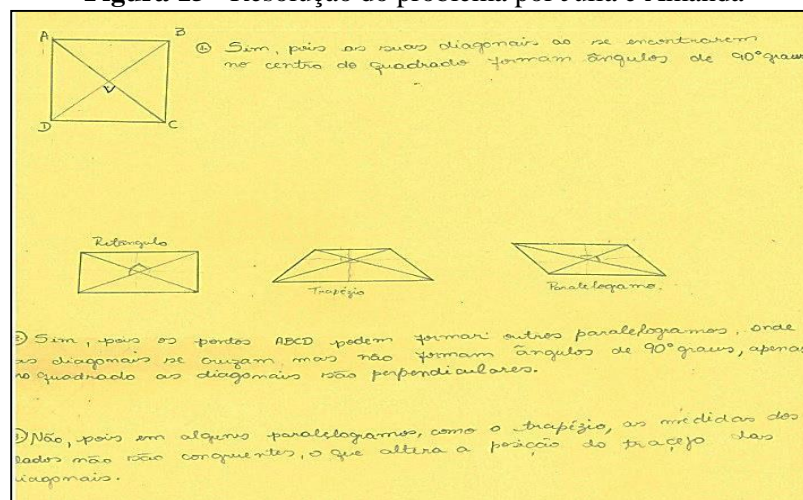 Resolução do problema por Júlia e Amanda
A
B
Sim, pois as suas diagonais ao se encontrarem
no centro do quadrado formam ângulos de 90° graus
D
C
Retângulo
Trapézio
Paralelogramo.
Sim, pois os pontos ABCD podem formar outros paralelogramos, onde
as diagonais se cruzam mas não formam ângulos de 90° graus, apenas
no quadrado as diagonais são perpendiculares.
Não, pois em alguns paralelogramos, como o trapézio, as medidas dos
lados não são congruentes, o que altera a posição do tracejo das
diagonais.